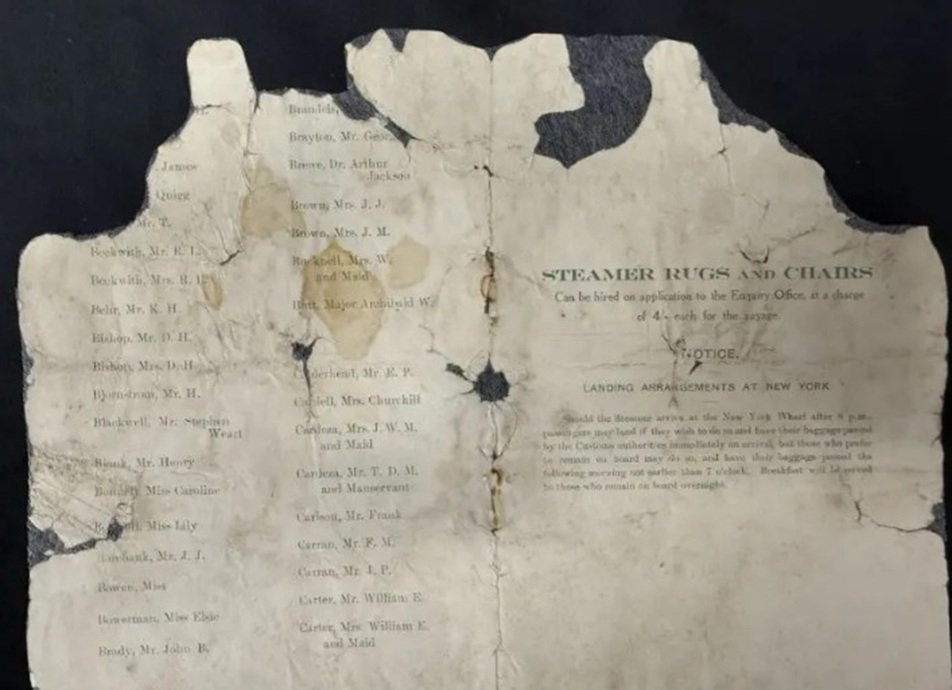 James
Quigg
Mr. T.
Beckwith, Mr. R. L.
Beckwith, Mrs. R. L
Behr, Mr. K. H.
Bishop, Mr. D. H.
Bishop, Mrs. D. H
Bjornstrom, Mr. H.
Blackwell, Mr. Stephen
Weart
Blank, Mr. Henry
Bonnell, Miss Caroline
Miss Lily
Mr. J. J.
Bowen, Miss
Bowerman, Miss Elsie
Brady, Mr. John B.
Brandeis,
Brayton, Mr. Geor
Brewe, Dr. Arthur
Jackson
Brown, Mrs. J. J.
Brown, Mrs. J. M.
Bucknell, Mrs. W.
and Maid
Butt, Major Archibald W.
Mr. E. P.
Mrs. Churchill
Cardeza, Mrs. J. W. M.
and Maid
Cardeza, Mr. T. D. M.
and Manservant
Carlson, Mr. Frank
Carran, Mr. F. M.
Carran, Mr. J. P.
Carter, Mr. William E.
Carter, Mrs. William E.
and Maid
STEAMER RUGS AND CHAIRS
Can be hired on application to the Enquiry Office, at a charge
of 4/- each for the voyage.
NOTICE.
LANDING ARRANGEMENTS AT NEW YORK
Should the Steamer arrive at the New York Wharf after 8 p.m.,
passengers may land if they wish to do so and have their baggage passed
by the Customs authorities immediately on arrival, but those who prefer
to remain on board may do so, and have their baggage passed the
following morning not earlier than 7 o'clock. Breakfast will be served
to those who remain on board overnight.